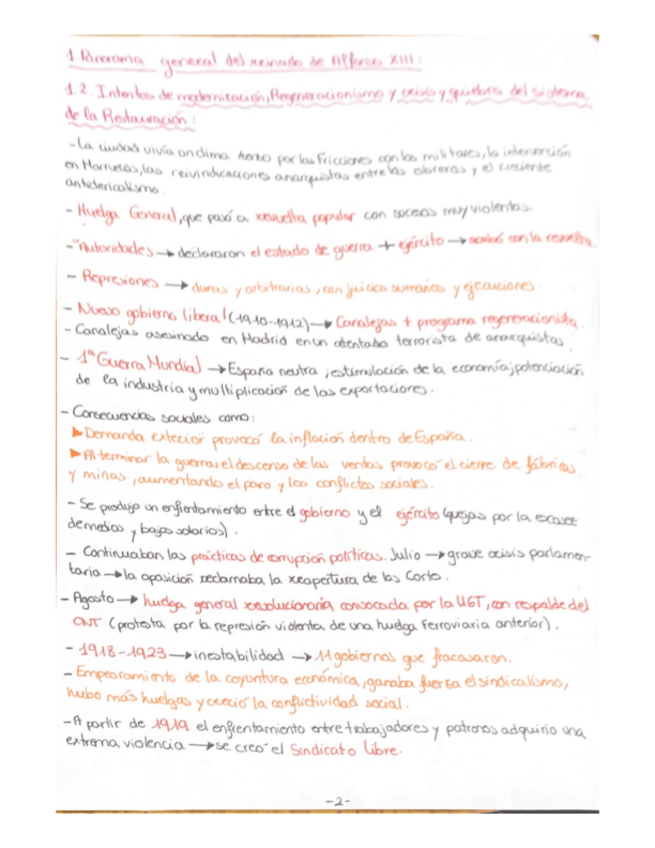 1. Panorama general del reinado de Alfonso XIII:
1.2. Intentos de modernización, Regeneracionismo y crisis y quiebra del sistema
de la Restauración:
- La ciudad vivía un clima tenso por las fricciones con los militares, la intervención
en Marruecos, las reivindicaciones anarquistas entre los obreros y el creciente
anticlericalismo.
- Huelga General, que pasó a revuelta popular con sucesos muy violentos.
- Autoridades → declararon el estado de guerra + ejército → acabó con la revuelta.
- Represiones → duras y arbitrarias, con juicios sumarios y ejecuciones.
- Nuevo gobierno liberal (1910-1912) → Canalejas + programa regeneracionista.
- Canalejas asesinado en Madrid en un atentado terrorista de anarquistas.
- 1ª Guerra Mundial → España neutra; estimulación de la economía; potenciación
de la industria y multiplicación de las exportaciones.
- Consecuencias sociales como:
▶ Demanda exterior provocó la inflación dentro de España.
▶ Al terminar la guerra: el descenso de las ventas provocó el cierre de fábricas
y minas, aumentando el paro y los conflictos sociales.
- Se produjo un enfrentamiento entre el gobierno y el ejército (quejas por la escasez
de medios y bajos salarios).
- Continuaban las prácticas de corrupción políticas. Julio → grave crisis parlamen-
taria → la oposición reclamaba la reapertura de las Corts.
- Agosto → huelga general revolucionaria convocada por la UGT, con respalde del
CNT (protesta por la represión violenta de una huelga ferroviaria anterior).
- 1918-1923 → inestabilidad → 11 gobiernos que fracasaron.
- Empeoramiento de la coyuntura económica, ganaba fuerza el sindicalismo,
hubo más huelgas y creció la conflictividad social.
- A partir de 1919 el enfrentamiento entre trabajadores y patronos adquirió una
extrema violencia → se creó el Sindicato Libre.
-2-